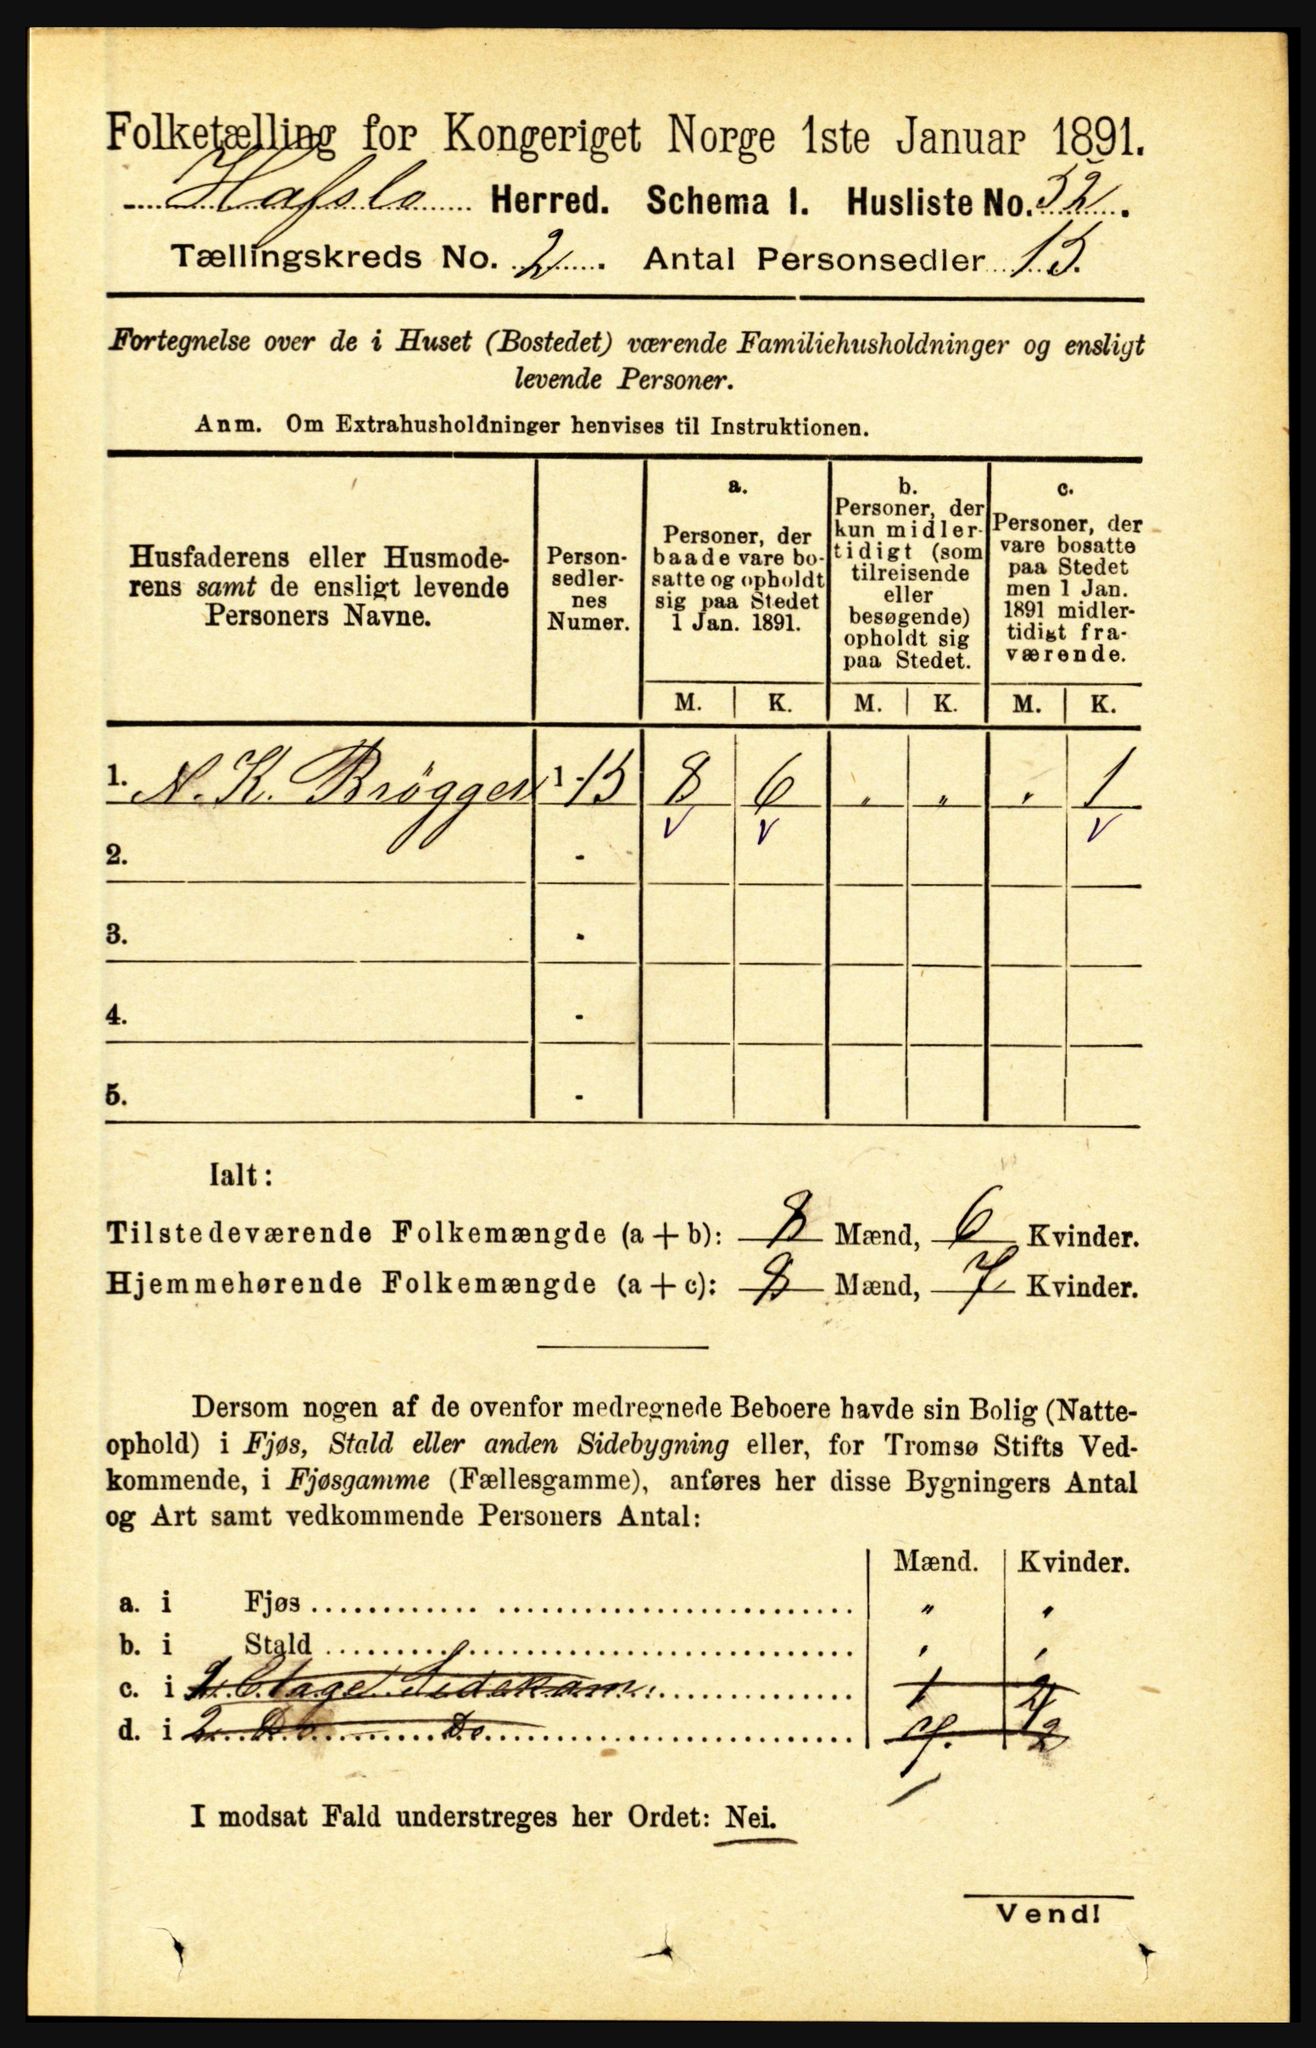 Folketælling for Kongeriget Norge 1ste Januar 1891.
Hafslo Herred. Schema 1. Husliste No. 32.
Tællingskreds No. 2. Antal Personsedler 15.
Fortegnelse over de i Huset (Bostedet) værende Familiehusholdninger og ensligt
levende Personer.
Anm. Om Extrahusholdninger henvises til Instruktionen.
Husfaderens eller Husmode-
rens samt de ensligt levende
Personers Navne.
Person-
sedler-
nes
Numer.
a.
Personer, der
baade vare bo-
satte og opholdt
sig paa Stedet
1 Jan. 1891.
b.
Personer, der
kun midler-
tidigt (som
tilreisende
eller
besøgende)
opholdt sig
paa Stedet.
c.
Personer, der
vare bosatte
paa Stedet
men 1 Jan.
1891 midler-
tidigt fra-
værende.
M. K. M. K. M. K.
1. N. K. Brøgger 1-15 8 6 " " " 1
2. -
3. -
4. -
5. -
Ialt:
Tilstedeværende Folkemængde (a + b): 8 Mænd, 6 Kvinder.
Hjemmehørende Folkemængde (a + c): 8 Mænd, 7 Kvinder.
Dersom nogen af de ovenfor medregnede Beboere havde sin Bolig (Natte-
ophold) i Fjøs, Stald eller anden Sidebygning eller, for Tromsø Stifts Ved-
kommende, i Fjøsgamme (Fællesgamme), anføres her disse Bygningers Antal
og Art samt vedkommende Personers Antal:
Mænd. Kvinder.
a. i Fjøs " "
b. i Stald " "
c. i Etage 1 2
d. i 2 Do Do 2
I modsat Fald understreges her Ordet: Nei.
Vend!